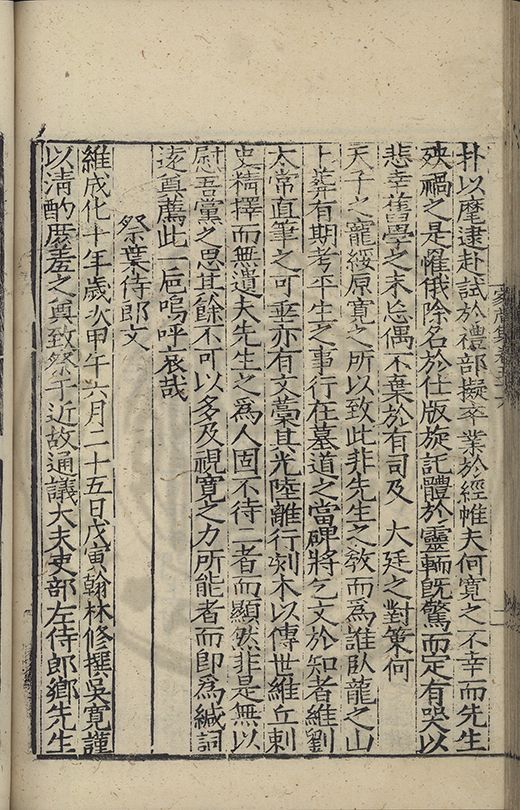 朴以麾逮赴試於禮部擬卒業於經帷夫何寬之不幸而先生
殃禍之是罹俄除名於仕版旋託體於靈輀既驚而定有哭以
悲幸舊學之未忘偶不棄於有司及 大廷之對策何
天子之龍綏原寬之所以致此非先生之教而爲誰臥龍之山
上葬有期考平生之事行在墓道之當碑將乞文於知者維劉
太常直筆之可垂亦有文藁其光陸離行刻木以傳世維丘刺
史精擇而無遺夫先生之爲人固不待二者而顯然非是無以
慰吾黨之思其餘不可以多及視寬之力所能者而即爲緘詞
遠奠薦此一巵嗚呼哀哉
祭葉侍郎文
維成化十年歲次甲午六月二十五日戊寅翰林修撰吳寬謹
以清酌庶羞之奠致祭于近故通議大夫吏部左侍郎鄉先生
家藏集卷五十六